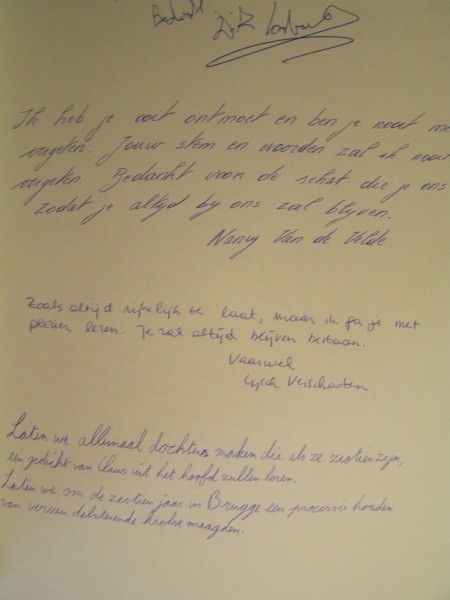 Bedankt
Dirk
Ik heb je ooit ontmoet en ben je nooit
vergeten. Jouw stem en woorden zal ik nooit
vergeten. Bedankt voor de schat die je ons
zodat je altijd bij ons zal blijven.
Nancy Van de Velde.
Zoals altijd te laat, maar ik ga je met
plezier lezen. Je zal altijd blijven bestaan.
Vaarwel
Verschooten
Laten we allemaal dochters maken die als ze zestien zijn,
een gedicht van Claus uit het hoofd zullen leren.
Laten we om de zestien jaar in Brugge een processie houden
van verzen debiterende maagden.